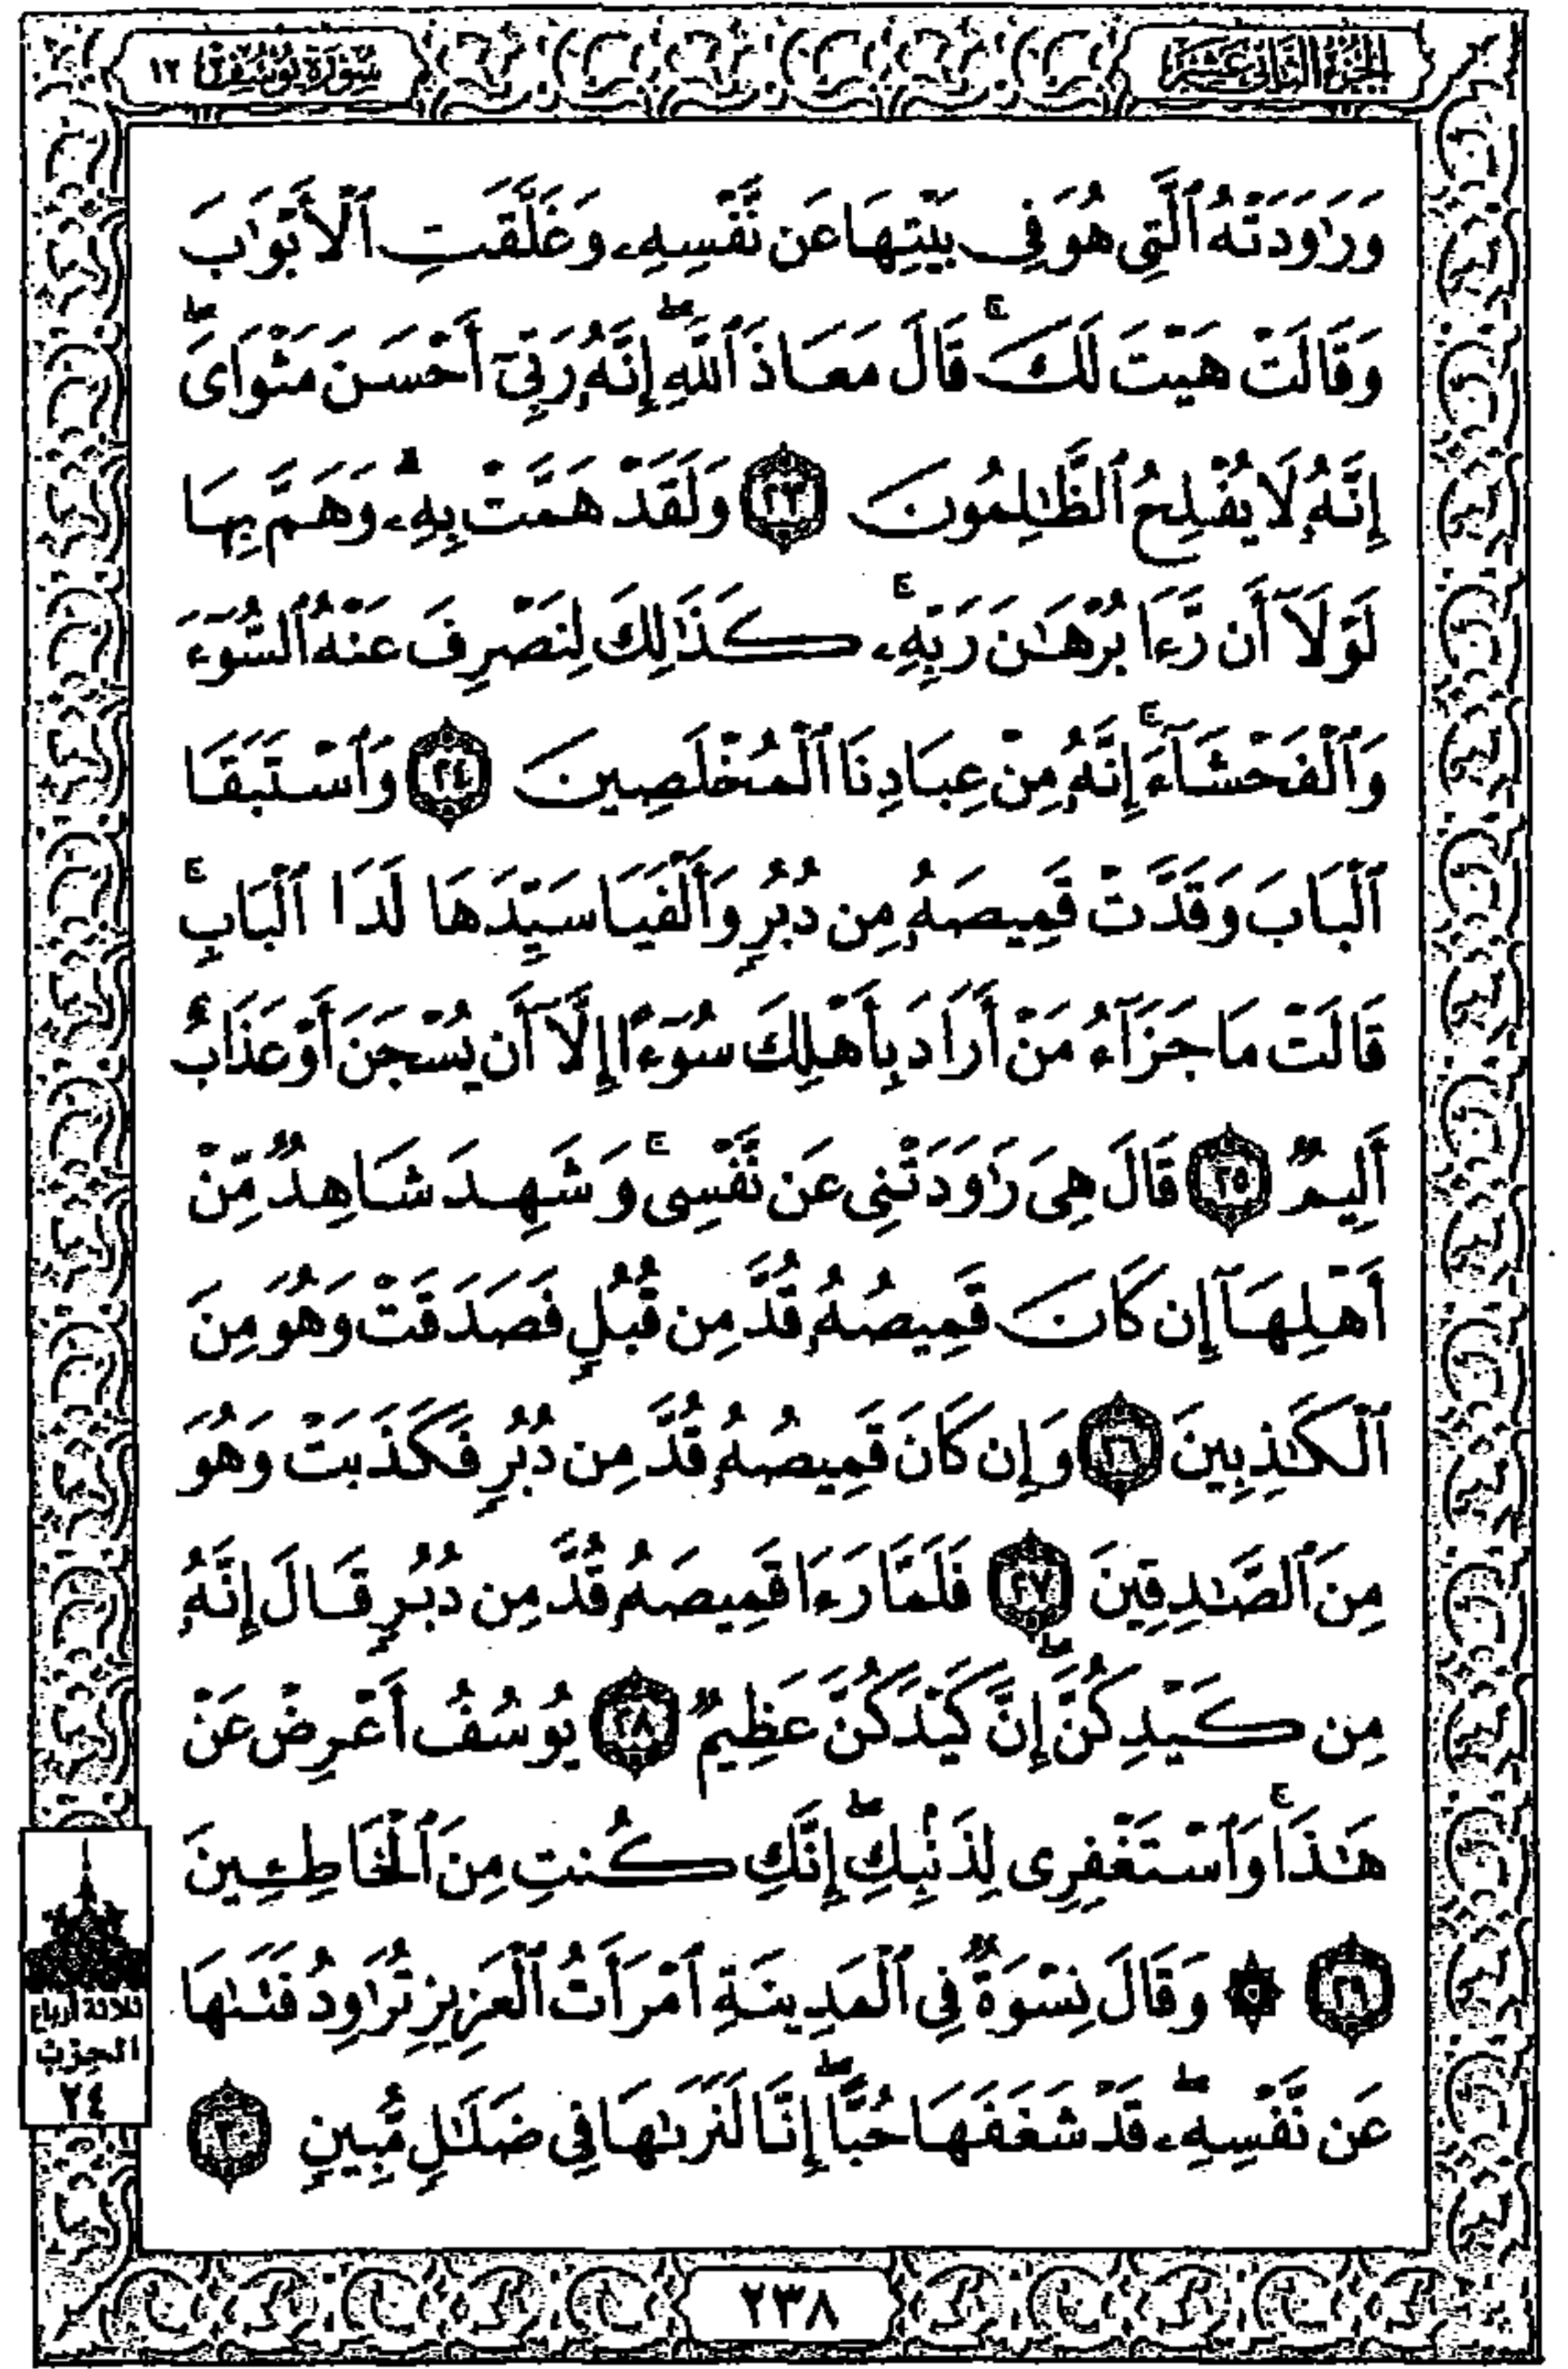 الجزء الثاني عشر
سورة يوسف ١٢
وَرَٰوَدَتْهُ ٱلَّتِى هُوَ فِى بَيْتِهَا عَن نَّفْسِهِۦ وَغَلَّقَتِ ٱلْأَبْوَٰبَ
وَقَالَتْ هَيْتَ لَكَ ۚ قَالَ مَعَاذَ ٱللَّهِ ۖ إِنَّهُۥ رَبِّىٓ أَحْسَنَ مَثْوَاىَ ۖ
إِنَّهُۥ لَا يُفْلِحُ ٱلظَّٰلِمُونَ ٢٣ وَلَقَدْ هَمَّتْ بِهِۦ ۖ وَهَمَّ بِهَا
لَوْلَآ أَن رَّءَا بُرْهَٰنَ رَبِّهِۦ ۚ كَذَٰلِكَ لِنَصْرِفَ عَنْهُ ٱلسُّوٓءَ
وَٱلْفَحْشَآءَ ۚ إِنَّهُۥ مِنْ عِبَادِنَا ٱلْمُخْلَصِينَ ٢٤ وَٱسْتَبَقَا
ٱلْبَابَ وَقَدَّتْ قَمِيصَهُۥ مِن دُبُرٍ وَأَلْفَيَا سَيِّدَهَا لَدَا ٱلْبَابِ ۚ
قَالَتْ مَا جَزَآءُ مَنْ أَرَادَ بِأَهْلِكَ سُوٓءًا إِلَّآ أَن يُسْجَنَ أَوْ عَذَابٌ
أَلِيمٌ ٢٥ قَالَ هِىَ رَٰوَدَتْنِى عَن نَّفْسِى ۚ وَشَهِدَ شَاهِدٌ مِّنْ
أَهْلِهَآ إِن كَانَ قَمِيصُهُۥ قُدَّ مِن قُبُلٍ فَصَدَقَتْ وَهُوَ مِنَ
ٱلْكَٰذِبِينَ ٢٦ وَإِن كَانَ قَمِيصُهُۥ قُدَّ مِن دُبُرٍ فَكَذَبَتْ وَهُوَ
مِنَ ٱلصَّٰدِقِينَ ٢٧ فَلَمَّا رَءَا قَمِيصَهُۥ قُدَّ مِن دُبُرٍ قَالَ إِنَّهُۥ
مِن كَيْدِكُنَّ ۖ إِنَّ كَيْدَكُنَّ عَظِيمٌ ٢٨ يُوسُفُ أَعْرِضْ عَنْ
هَٰذَا ۚ وَٱسْتَغْفِرِى لِذَنۢبِكِ ۖ إِنَّكِ كُنتِ مِنَ ٱلْخَاطِـِٔينَ
٢٩ ۞ وَقَالَ نِسْوَةٌ فِى ٱلْمَدِينَةِ ٱمْرَأَتُ ٱلْعَزِيزِ تُرَٰوِدُ فَتَىٰهَا
عَن نَّفْسِهِۦ ۖ قَدْ شَغَفَهَا حُبًّا ۖ إِنَّا لَنَرَىٰهَا فِى ضَلَٰلٍ مُّبِينٍ ٣٠
ثلاثة أرباع
الحزب
٢٤
٢٣٨